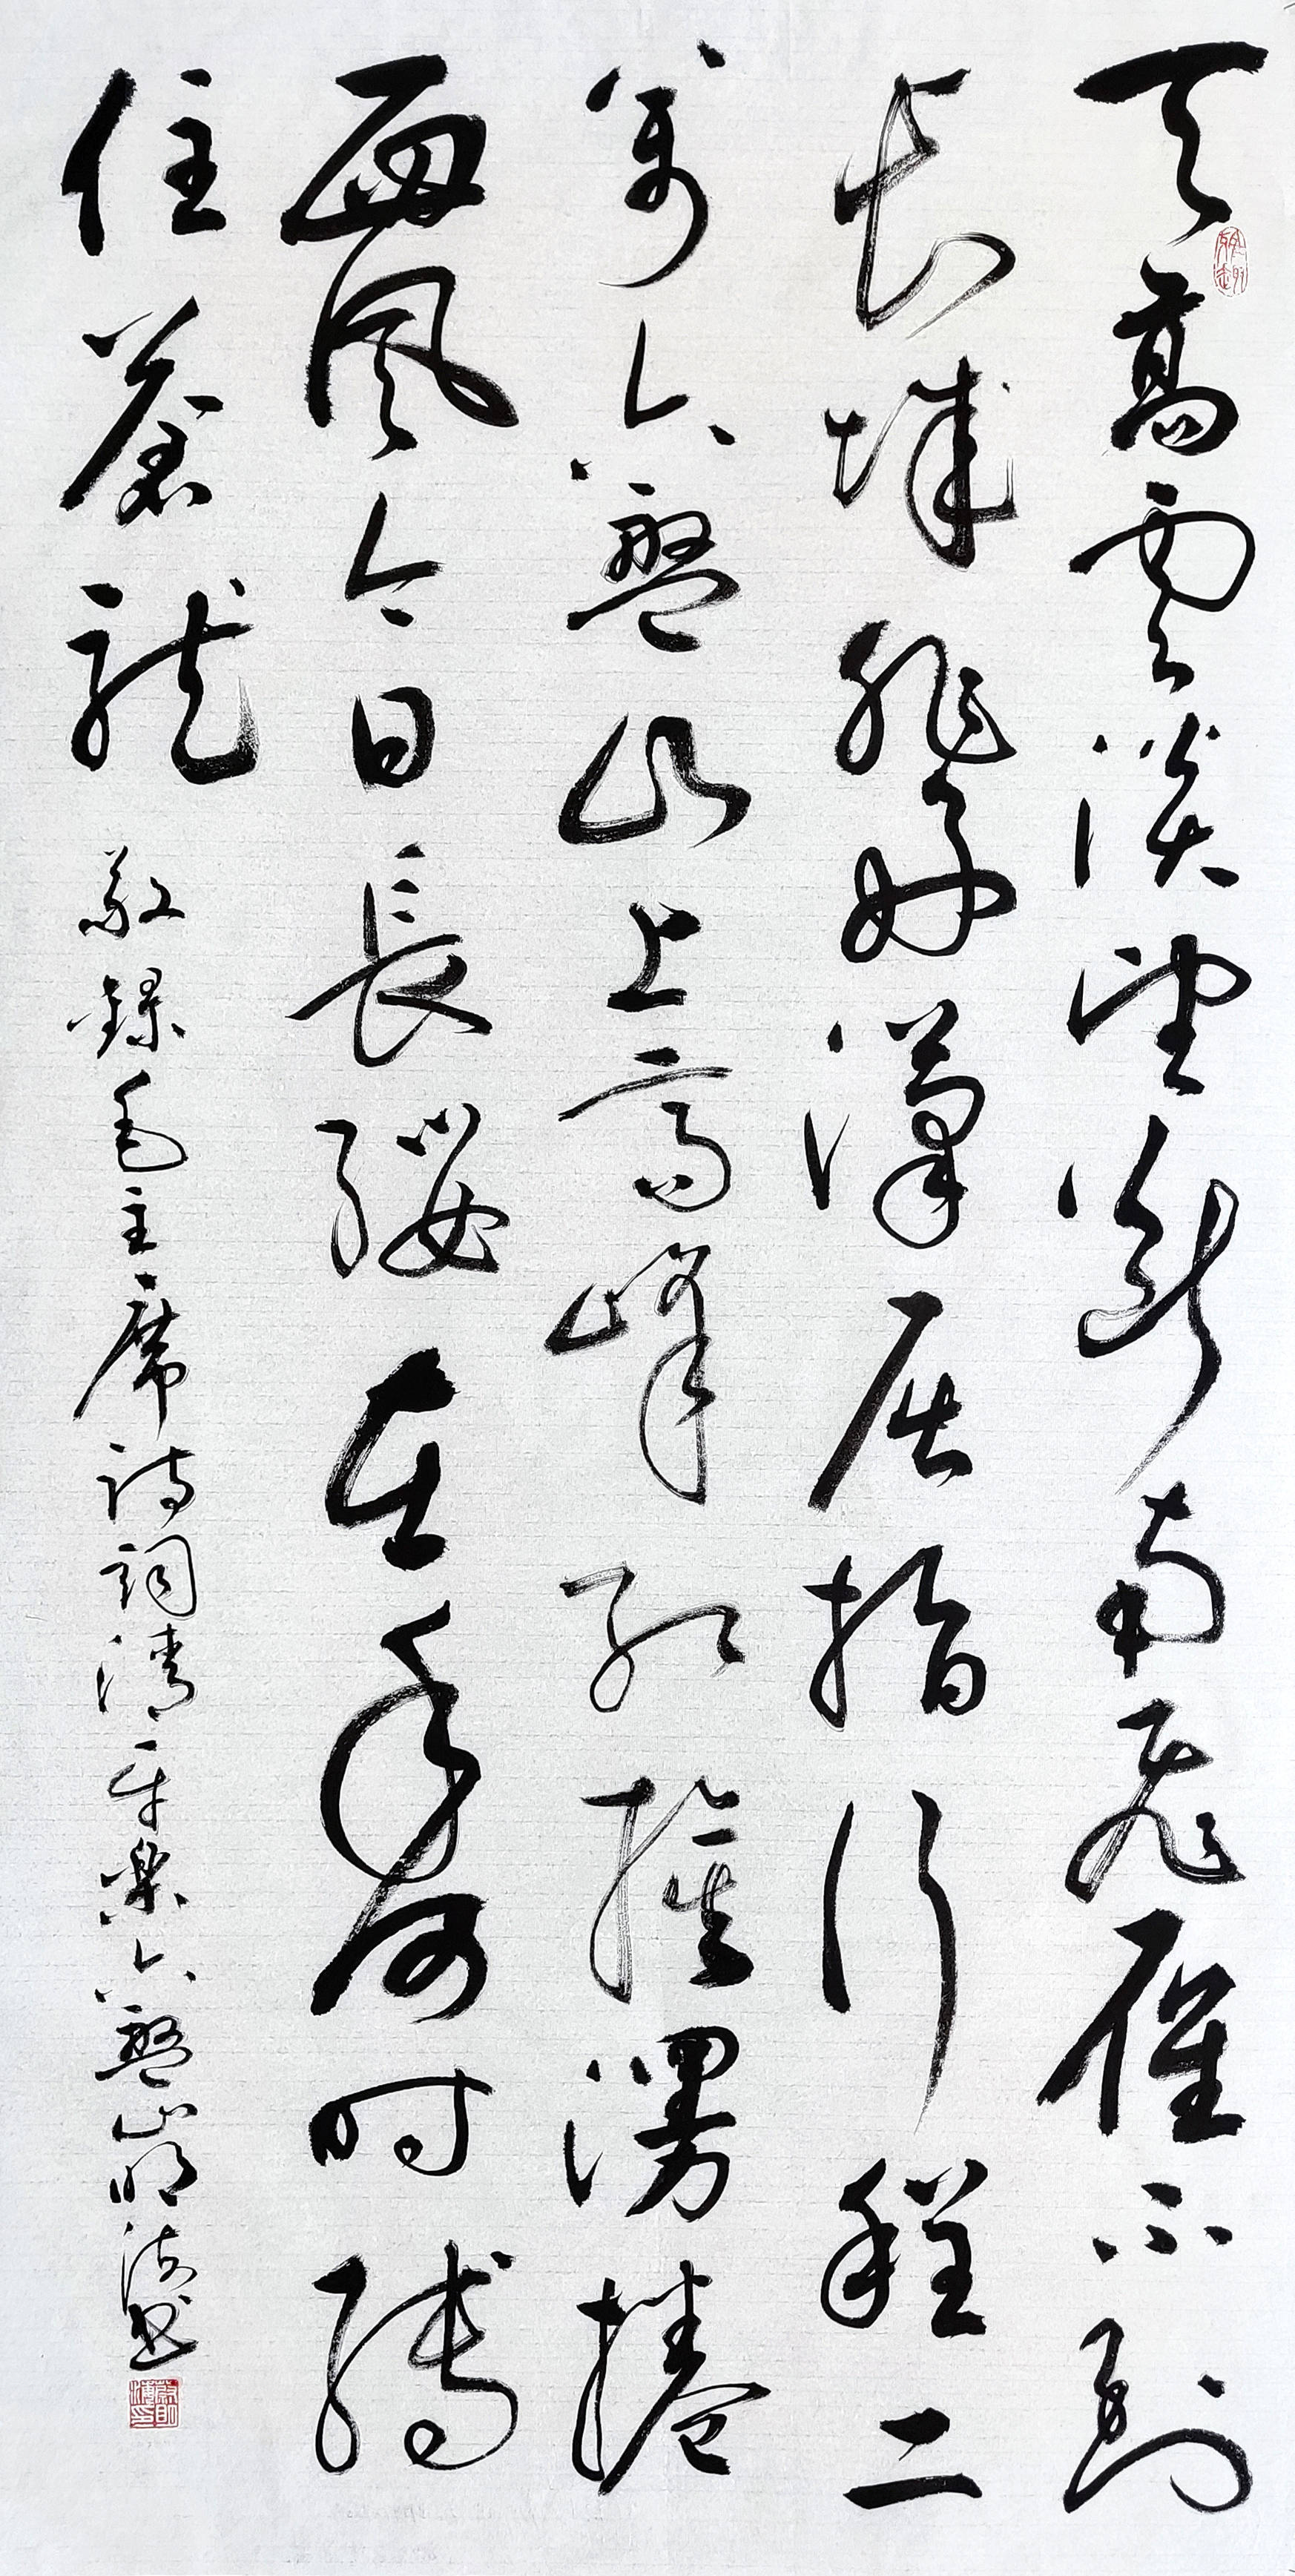 天高雲淡望斷南飛雁不到
長城非好漢屈指行程二
萬六盤山上高峰紅旗漫捲
西風今日長纓在手何時縛
住蒼龍
敬錄毛主席詩詞清平樂六盤山明海書